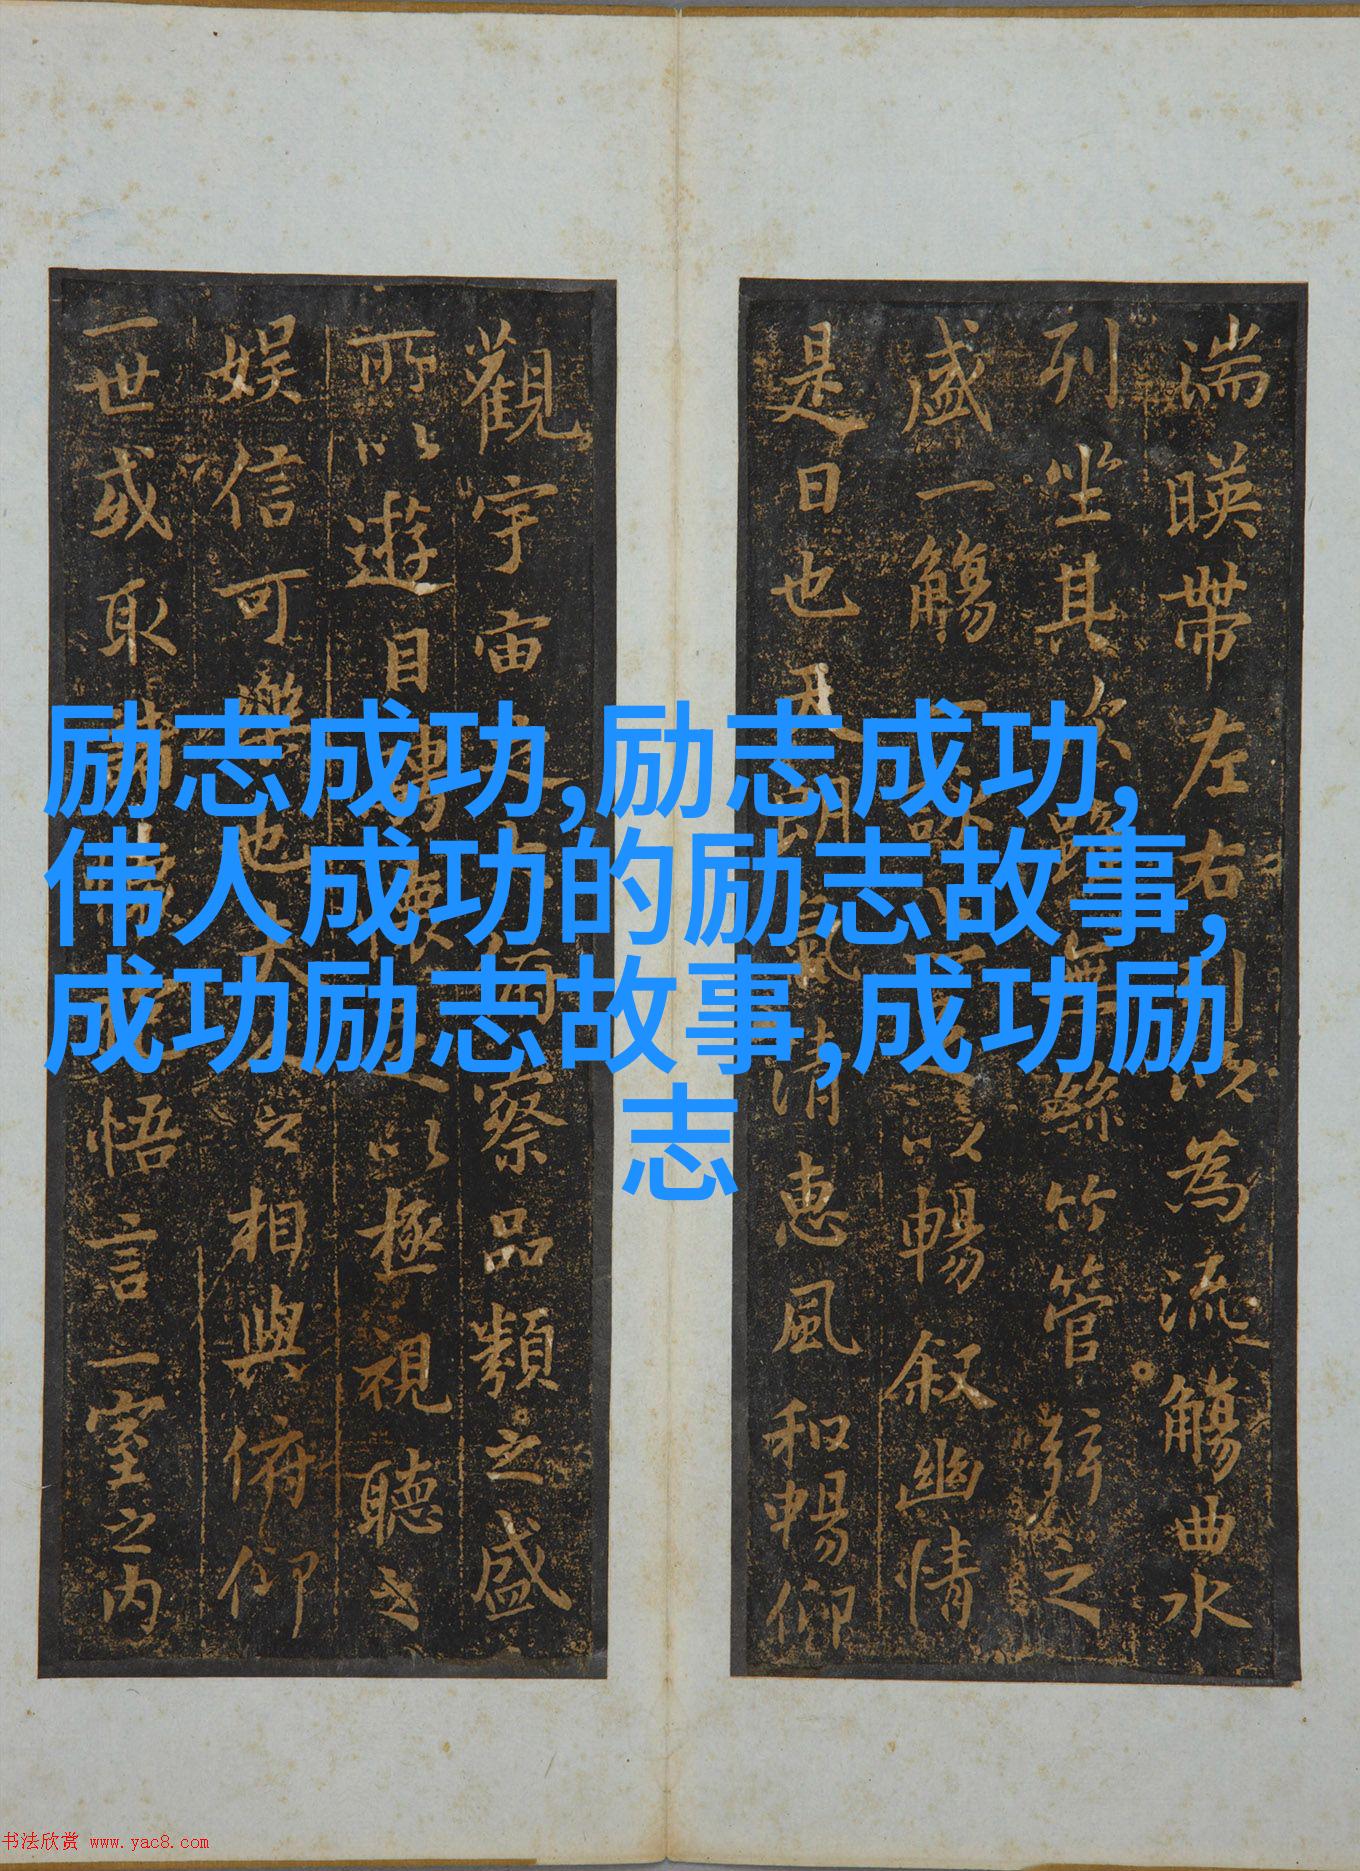 湍暎帶左右引以為流觴曲水
列坐其次雖無絲竹管弦之
盛一觴一詠亦足以暢叙幽情
是日也天朗氣清惠風和暢仰
觀宇宙之大俯察品類之盛
所以遊目騁懷足以極視聽之
娱信可樂也夫人之相與俯仰
一世或取諸懷抱悟言一室之内
励志成功,励志成功,
伟人成功的励志故事,
成功励志故事,成功励
志
书法欣赏 www.yac8.com